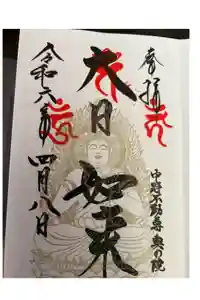 奉拝
中野不動尊 奥の院
大日如来
令和六年 四月八日